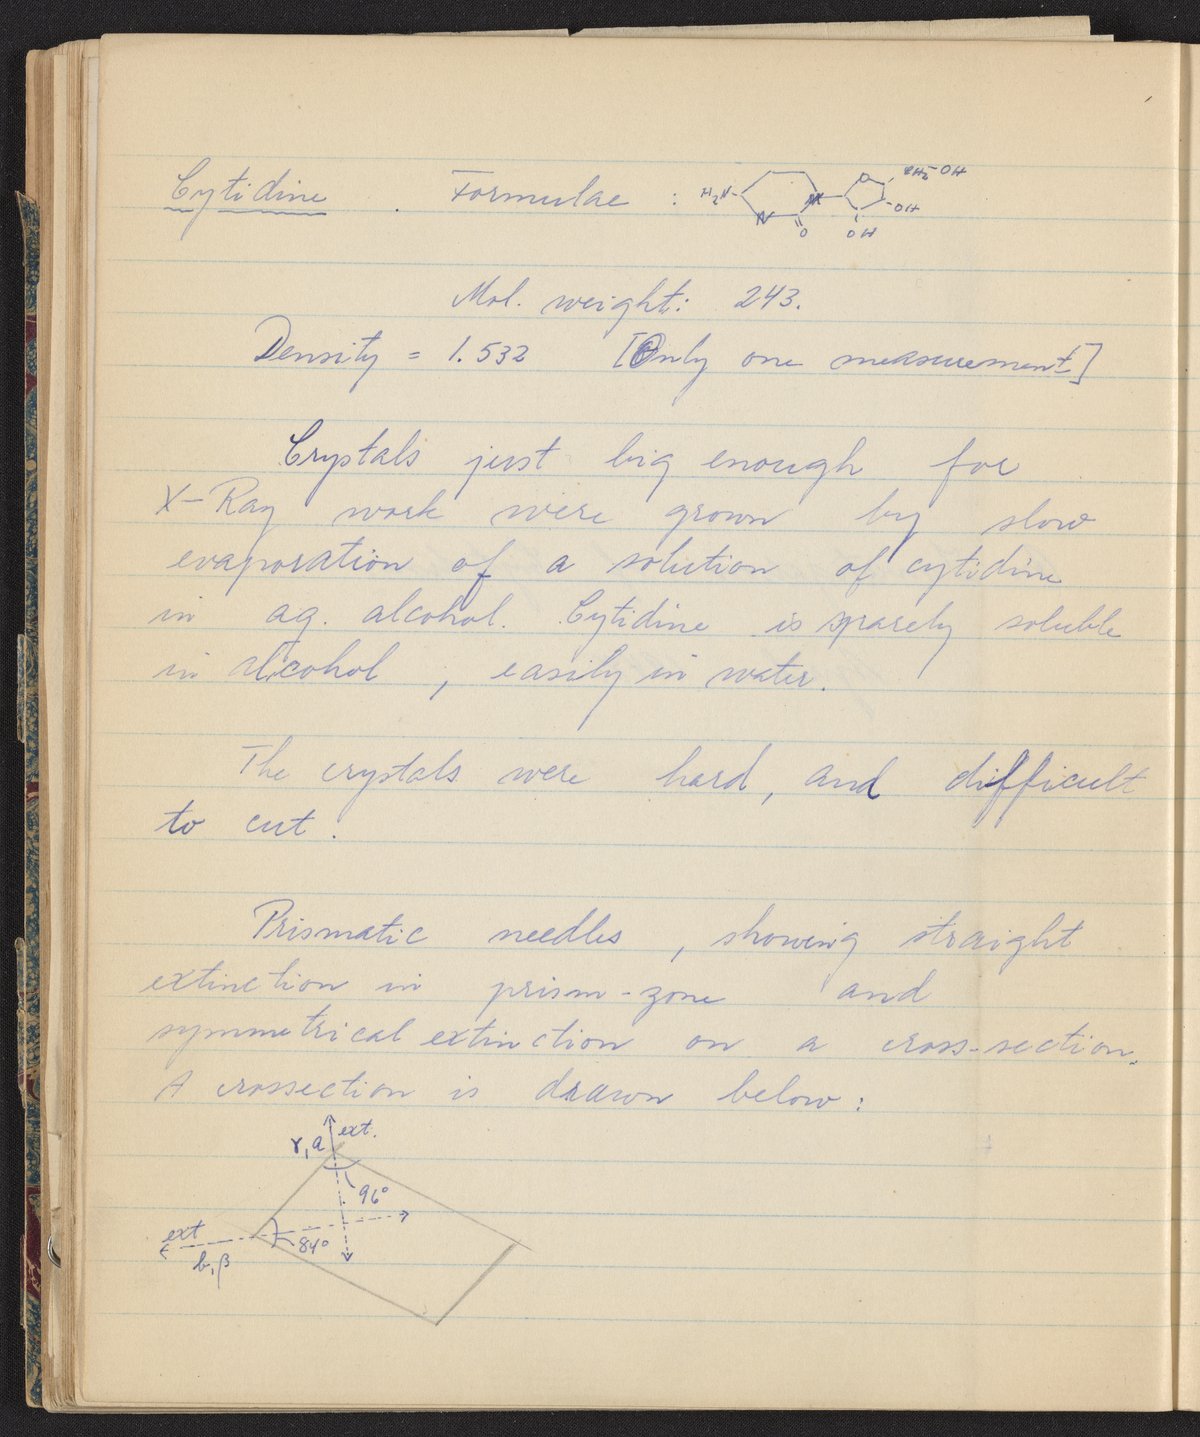 Cytidine . Formulae : H₂N N N O O CH₂ OH OH OH
Mol. weight: 243.
Density = 1.532 [Only one measurement]
Crystals just big enough for
X-Ray work were grown by slow
evaporation of a solution of cytidine
in aq. alcohol. Cytidine is sparely soluble
in alcohol , easily in water.
The crystals were hard, and difficult
to cut .
Prismatic needles , showing straight
extinction in prism-zone and
symmetrical extinction on a cross-section.
A crossection is drawn below:
γ, a ext.
96°
ext
84°
b, β